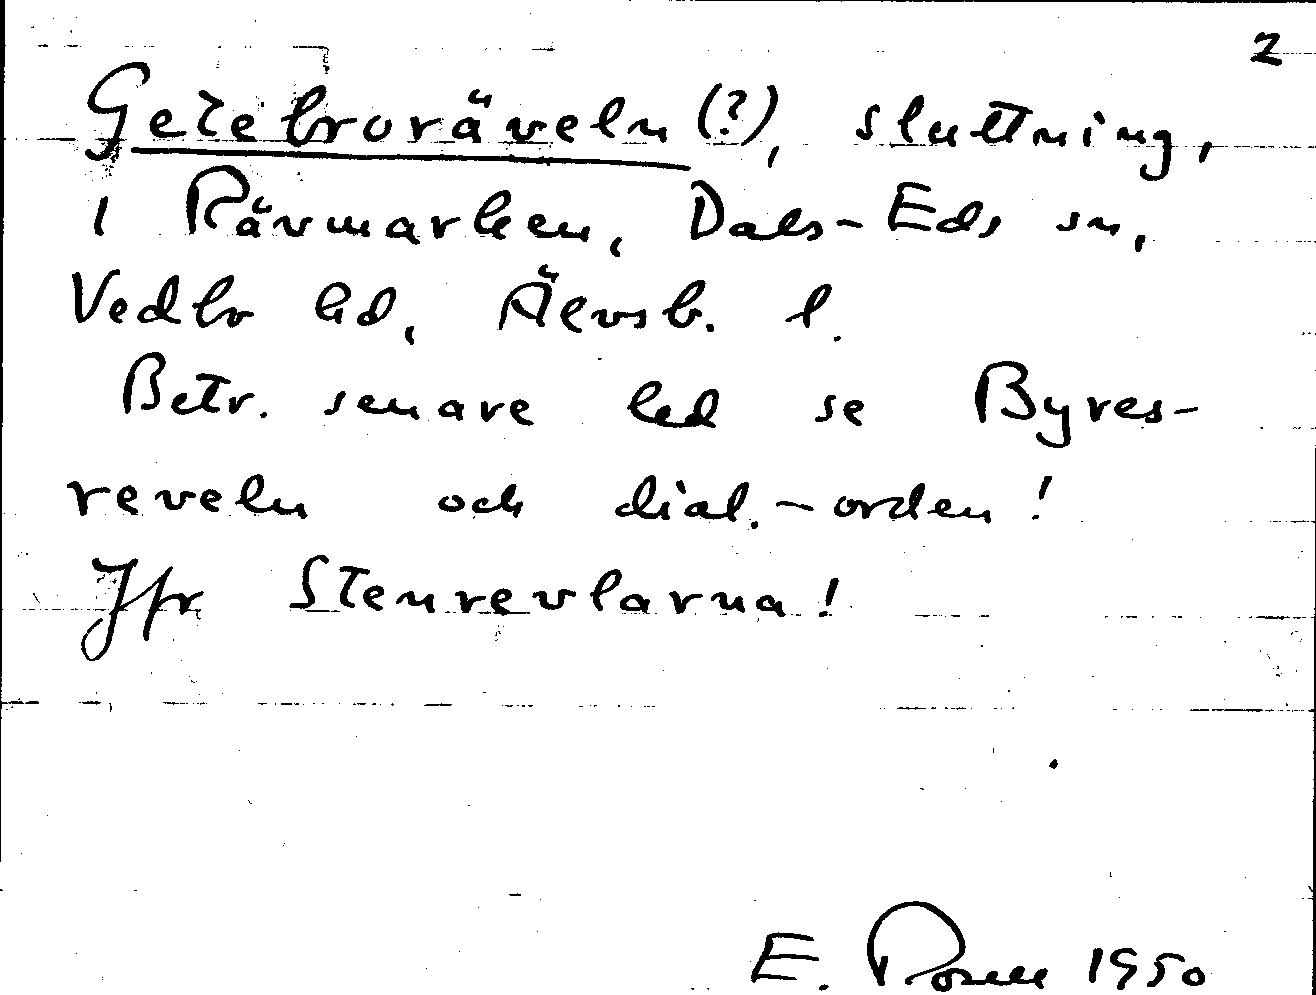 2
Getebroräveln (?), sluttning,
i Rävmarken, Dals-Eds sn,
Vedbo hd, Älvsb. l.
Betr. senare led se Byres-
reveln och dial.-orden!
Jfr Stenrevlarna!
E. Rosell 1950